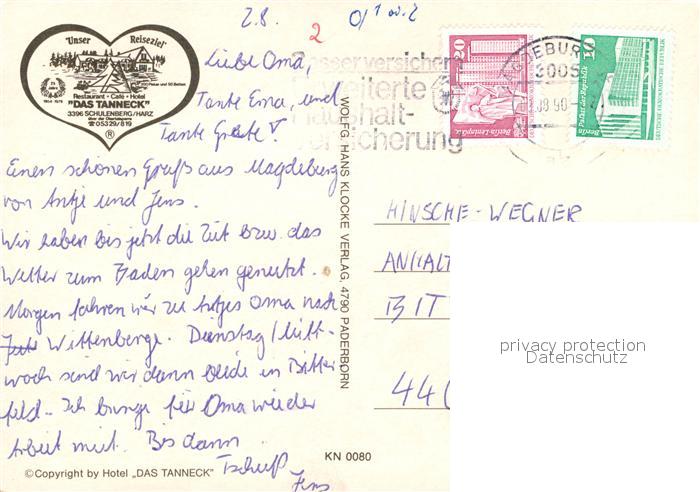 2.8.
2
Unser Reiseziel
Restaurant - Café - Hotel
"DAS TANNECK"
3396 SCHULENBERG/HARZ
☎ 05329/819
®
Liebe Oma,
Tante Erna, und
Tante Grete!
Einen schönen Gruß aus Magdeburg
von Antje und Jens.
Wir haben bis jetzt die Zeit bzw. das
Wetter zum Baden gehen genutzt.
Morgen fahren wir zu Antjes Oma nach
Wittenberge. Dienstag/Mitt-
woch sind wir dann beide in Bitter
feld. Ich bringe für Oma wieder
Arbeit mit. Bis dann
Tschüß
Jens
© Copyright by Hotel „DAS TANNECK"
WOLFG. HANS KLOCKE VERLAG, 4790 PADERBORN
KN 0080
Besser versichert
erweiterte
Haushalt-
versicherung
MAGDEBURG
3005
20
Berlin-Leninplatz
10
Palast der Republik
Berlin
HINSCHE-WEGNER
ANHALT
BIT
44
privacy protection
Datenschutz